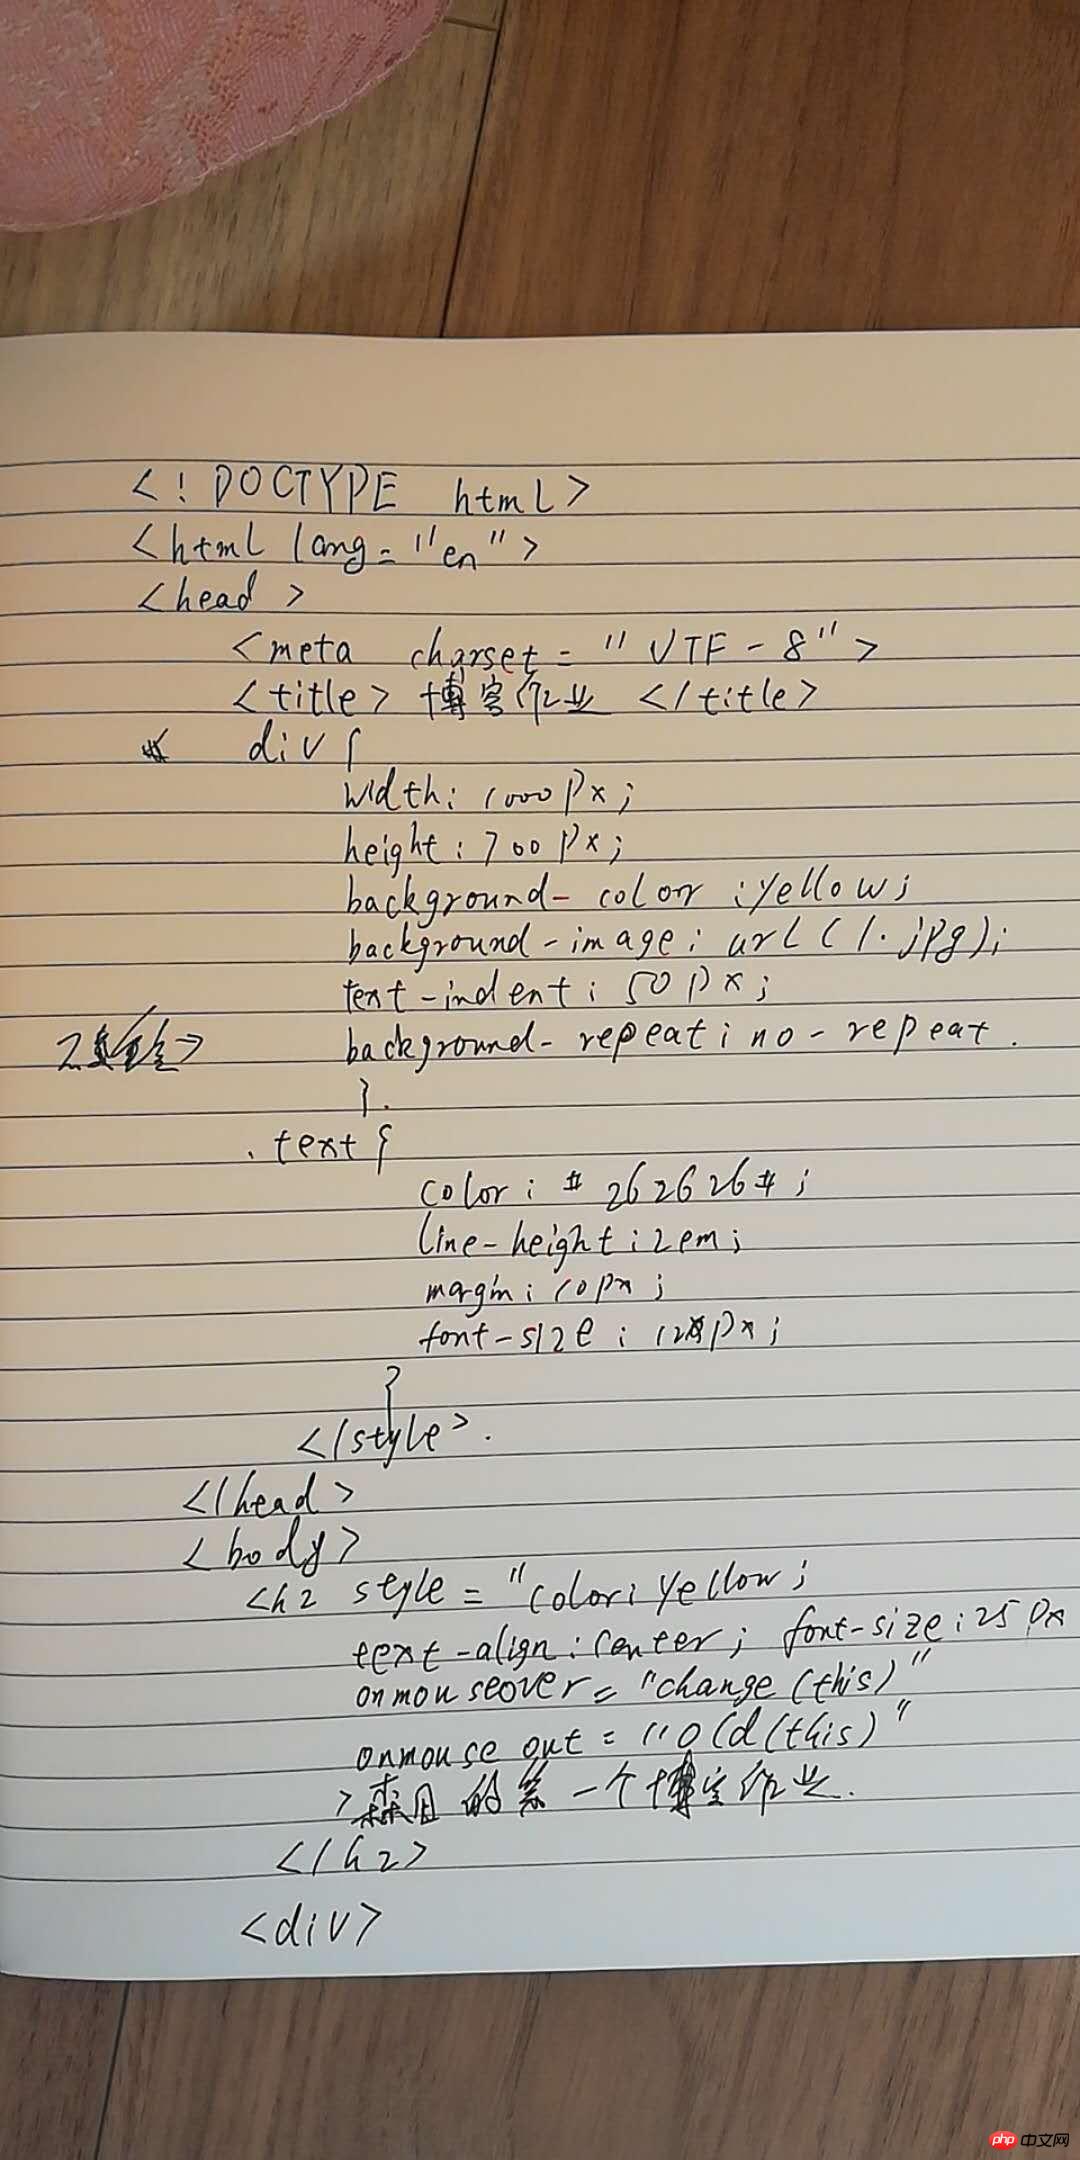 <!DOCTYPE html>
<html lang="en">
<head>
<meta charset="UTF-8">
<title>博客作业</title>
div{
width:1000px;
height:700px;
background-color:yellow;
background-image:url(1.jpg);
text-indent:50px;
background-repeat:no-repeat.
}.
.text{
color:#262626#;
line-height:2em;
margin:10px;
font-size:12px;
}
</style>.
</head>
<body>
<h2 style="color:yellow;
text-align:center; font-size:25px
onmouseover="change(this)"
onmouseout="old(this)"
>的第一个博客作业.
</h2>
<div>
php 中文网